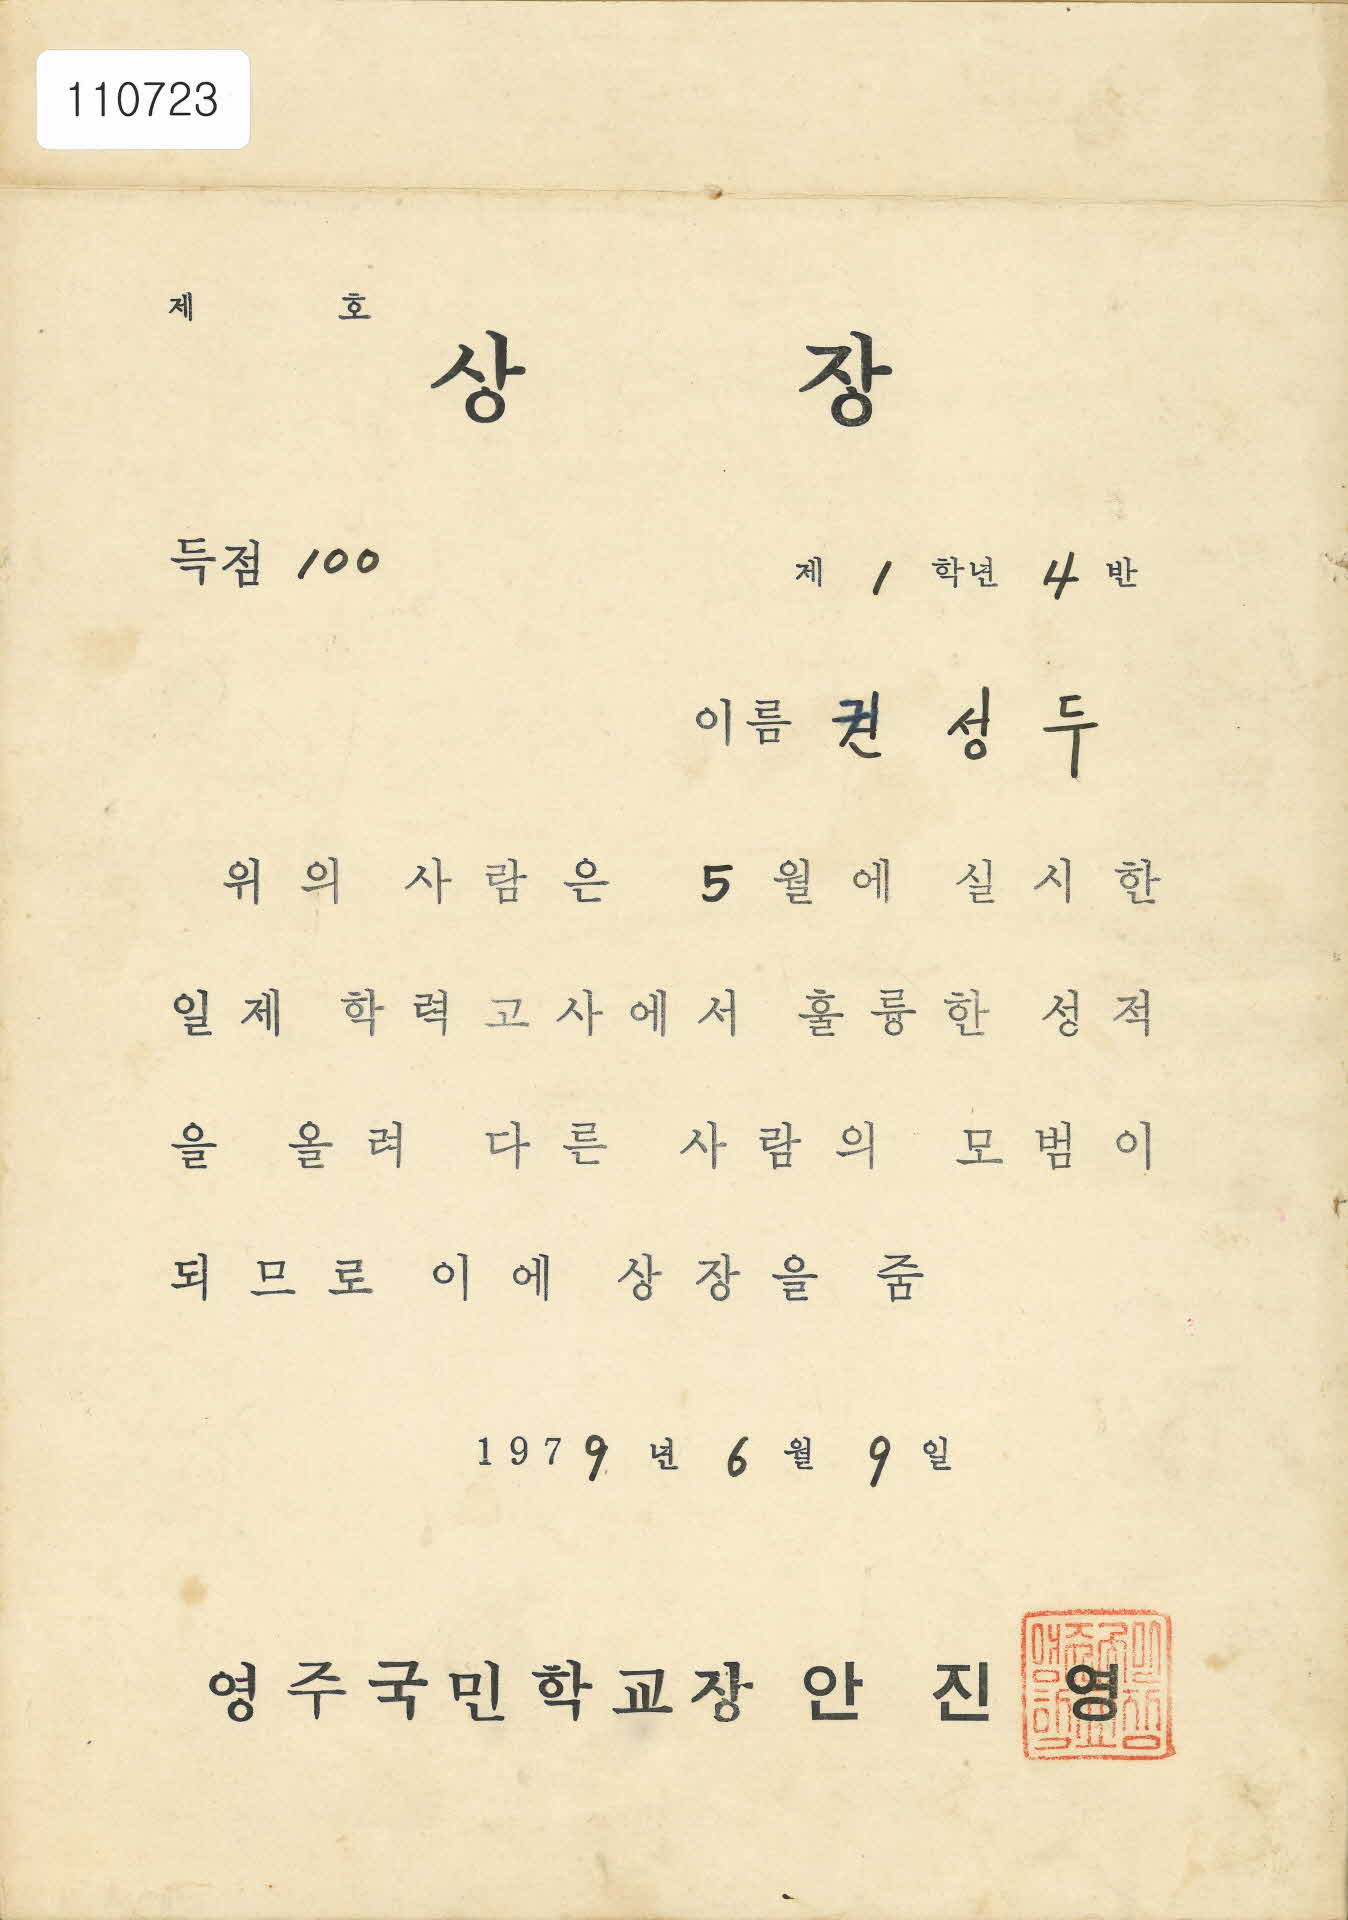 110723
제 호
상 장
득점 100 제 1 학년 4 반
이름 권 성 두
위의 사람은 5월에 실시한
일제 학력고사에서 훌륭한 성적
을 올려 다른 사람의 모범이
되므로 이에 상장을 줌
1979 년 6 월 9 일
영주국민학교장 안 진 영